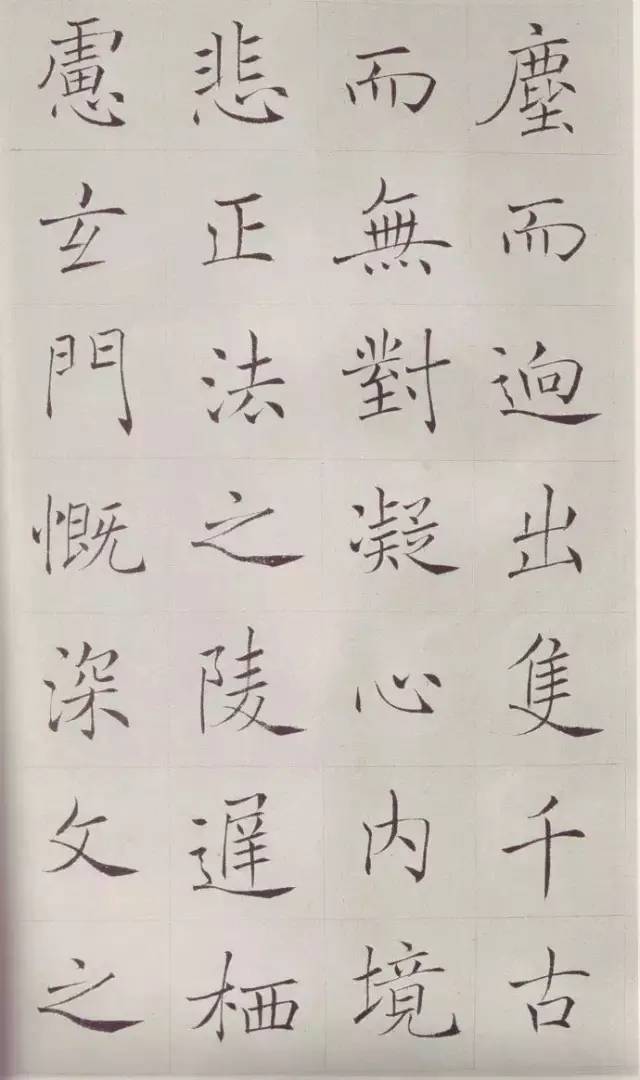 塵而逈出隻千古
而無對凝心內境
悲正法之陵遲栖
慮玄門慨深文之